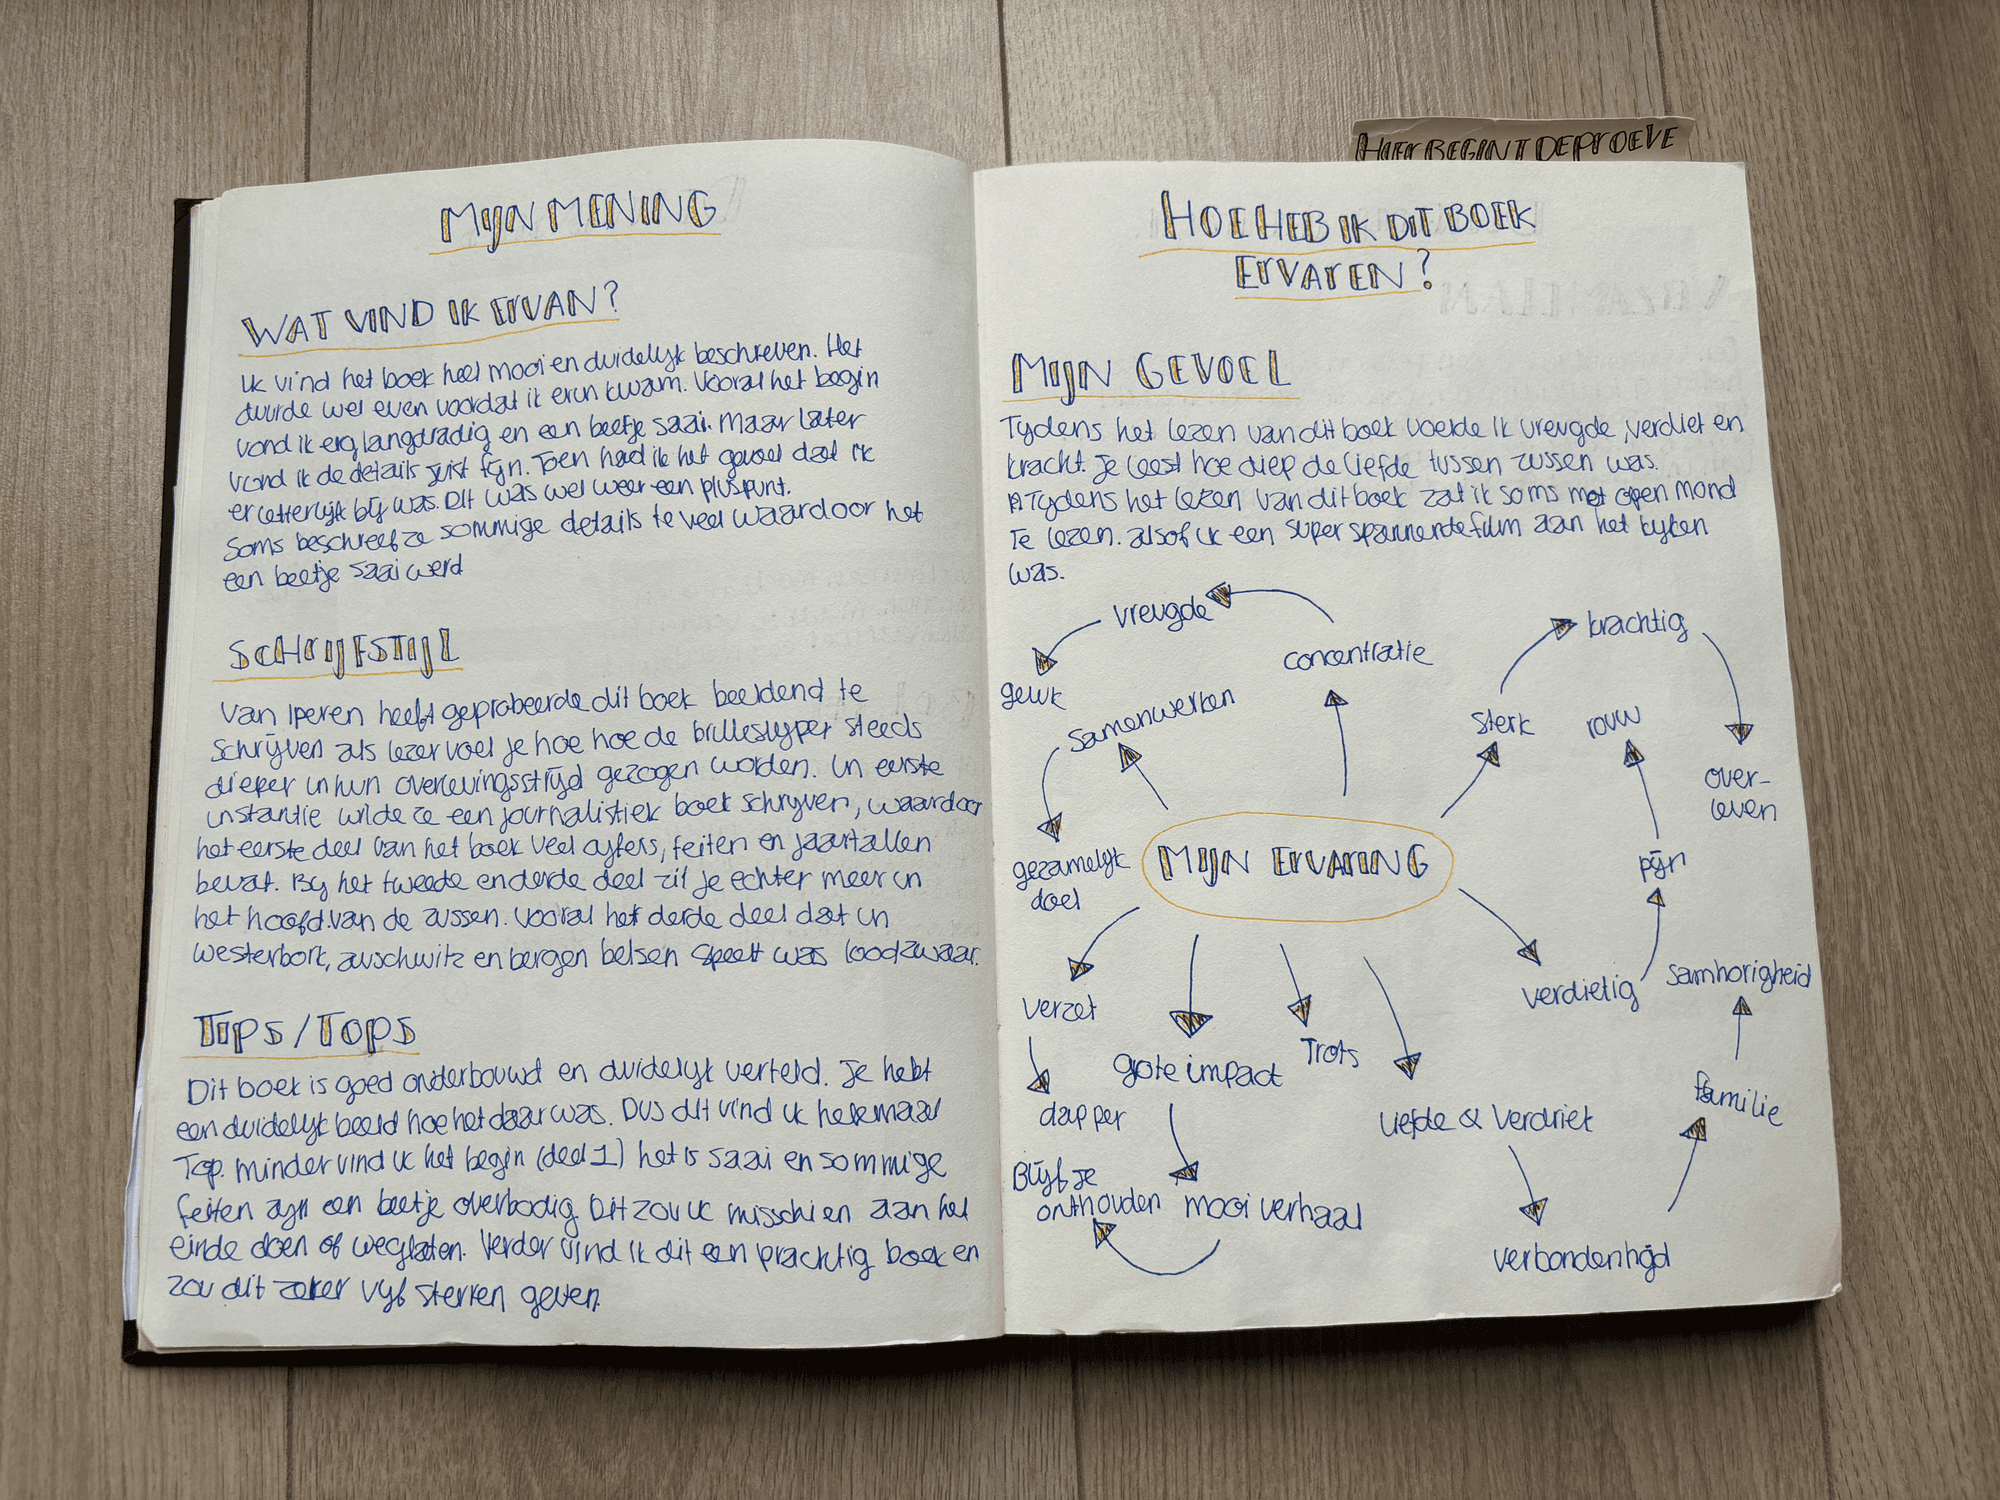 HIER BEGINT DE PROEVE
MIJN MENING
WAT VIND IK ERVAN?
Ik vind het boek heel mooi en duidelijk beschreven. Het
duurde wel even voordat ik erin kwam. Vooral het begin
vond ik erg langdradig en een beetje saai. Maar later
vond ik de details juist fijn. Toen had ik het gevoel dat ik
er letterlijk bij was. Dit was wel weer een pluspunt.
Soms beschreef ze sommige details te veel waardoor het
een beetje saai werd
SCHRIJFSTIJL
Van Iperen heeft geprobeerde dit boek beeldend te
schrijven als lezer voel je hoe hoe de brilleslijper steeds
dieper in hun overlevingsstrijd gezogen worden. In eerste
instantie wilde ze een journalistiek boek schrijven, waardoor
het eerste deel van het boek veel cijfers, feiten en jaartallen
bevat. Bij het tweede en derde deel zit je echter meer in
het hoofd van de zussen. Vooral het derde deel dat in
Westerbork, auschwitz en bergen belsen speelt was loodzwaar.
TIPS/TOPS
Dit boek is goed onderbouwd en duidelijk verteld. Je hebt
een duidelijk beeld hoe het daar was. Dus dit vind ik helemaal
Top. Minder vind ik het begin (deel 1) het is saai en sommige
feiten zijn een beetje overbodig. Dit zou ik misschien aan het
einde doen of weglaten. Verder vind ik dit een prachtig boek en
zou dit zeker vijf sterren geven.
HOE HEB IK DIT BOEK
ERVAREN?
MIJN GEVOEL
Tijdens het lezen van dit boek voelde ik vreugde, verdiet en
kracht. Je leest hoe diep de liefde tussen zussen was.
Tijdens het lezen van dit boek zat ik soms met open mond
te lezen. alsof ik een super spannende film aan het kijken
was.
vreugde
geluk
concentratie
samenwerken
gezamelijk
doel
krachtig
sterk
over-
leven
rouw
pijn
MIJN ERVARING
verdietig
verzet
dapper
grote impact
Trots
mooi verhaal
Blijf je
onthouden
Liefde & Verdriet
verbondenheid
familie
samhorigheid